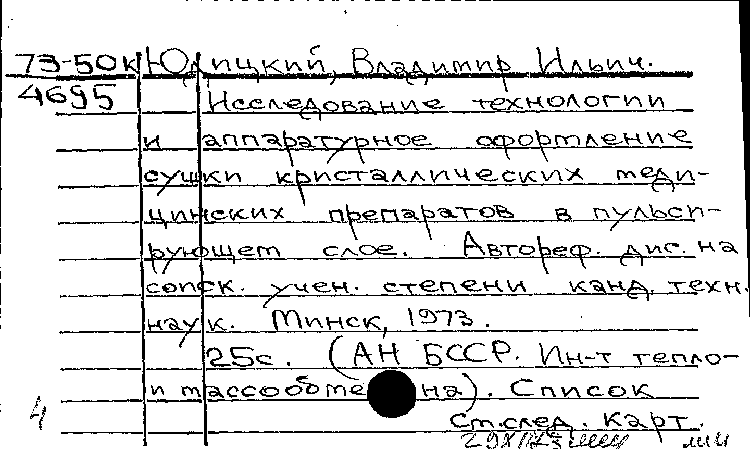 73-50к Юдицкий, Владимир Ильич.
4695 Исследование технологии
и аппаратурное оформление
сушки кристаллических меди-
цинских препаратов в пульси-
рующем слое. Автореф. дис. на
соиск. учен. степени канд. техн.
наук. Минск, 1973.
25с. (АН БССР. Ин-т тепло-
и массообмена). Список
4 См.след. карт.